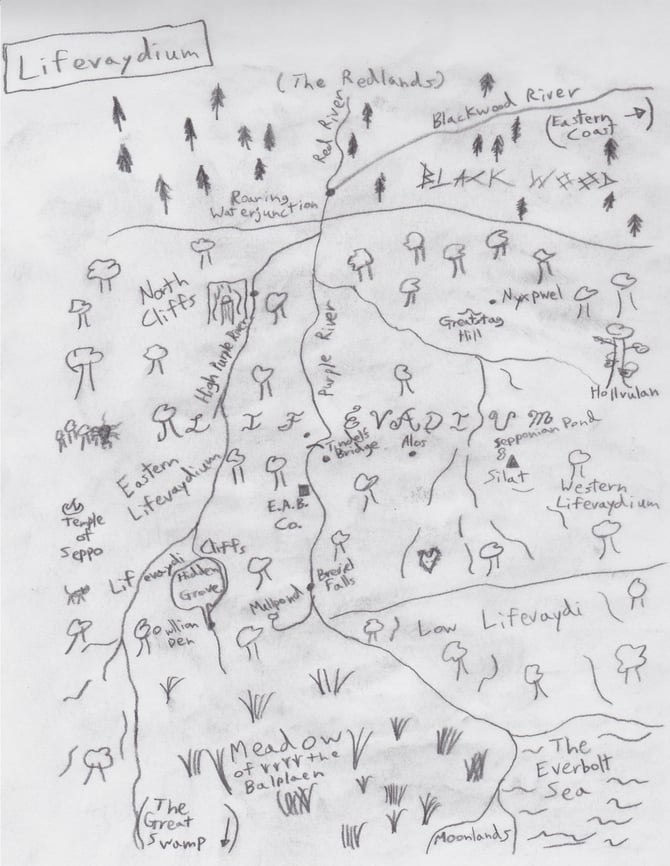 Lifevaydium
(The Redlands)
Red River
Blackwood River
(Eastern
Coast →)
BLACK WOOD
Roaring
Waterjunction
North
Cliffs
High Purple River
Purple River
Nyxpwel
Greatstag
Hill
Hollvulan
LIFEVADIUM
Tingels
Bridge
Alos
Sepponian Pond
Silat
Eastern
Lifevaydium
Western
Lifevaydium
E.A.B.
Co.
Temple
of
Seppo
Lifevaydi Cliffs
Hidden
Grove
Owllian
Pen
Mellpond
Falls
Low Lifevaydi
Meadow
of rrrr the
Balplaen
The
Everbolt
Sea
(The
Great
Swamp ↓)
(Moonlands